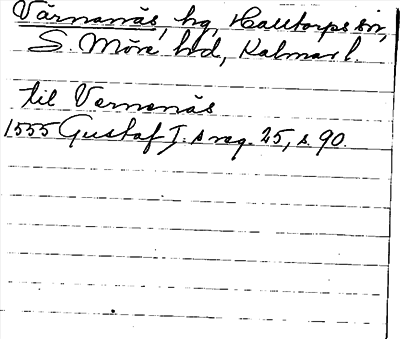 Värnanäs, hg, Halltorps sn,
S. Möre hd, Kalmar l.
til Vernenäs
1555 Gustaf I:s reg. 25, s. 90.